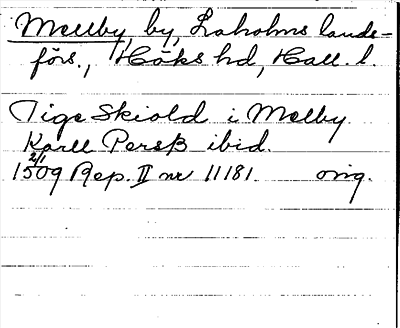 Mellby, by, Laholms lands-
förs., Höks hd, Hall. l.
Tige Skiold i Melby
Karll Persß ibid.
2/1
1509 Rep. II nr 11181 orig.